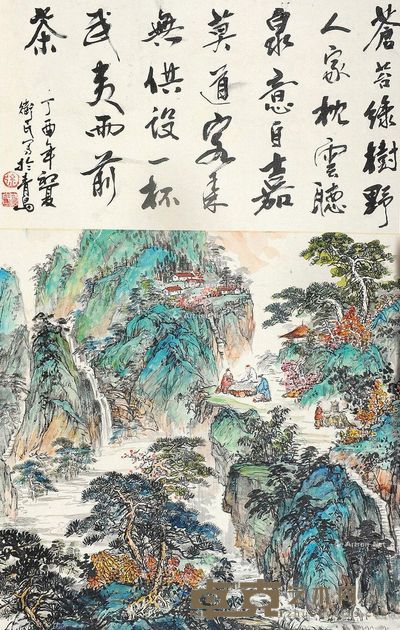 蒼苔綠樹野
人家枕雲聽
泉意自嘉
莫道客來
無供設一杯
武夷雨前
茶
丁酉年初夏
寫於青島